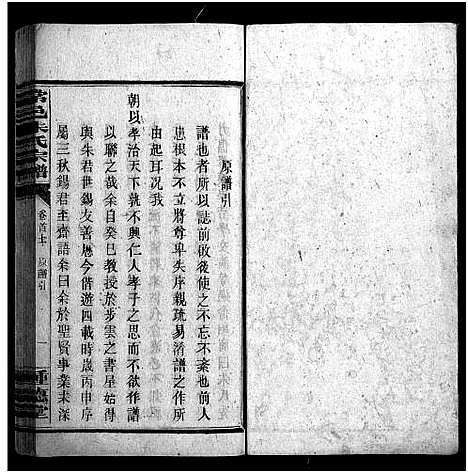 原譜引
譜也者所以誌前啟後使之不忘不紊也前人
患根本不立將尊卑失序親疏易淆譜之作所
由起耳況我
朝以孝治天下孰不興仁人孝子之思而不欲作譜
以聯之哉余自癸巳教授於步雲之書屋始得
與朱君世錫友善歷今偕遊四載時歲丙申序
屬三秋錫君至齋語余曰余於聖賢事業未深
邑朱氏宗譜
卷首 原譜引 一
堂